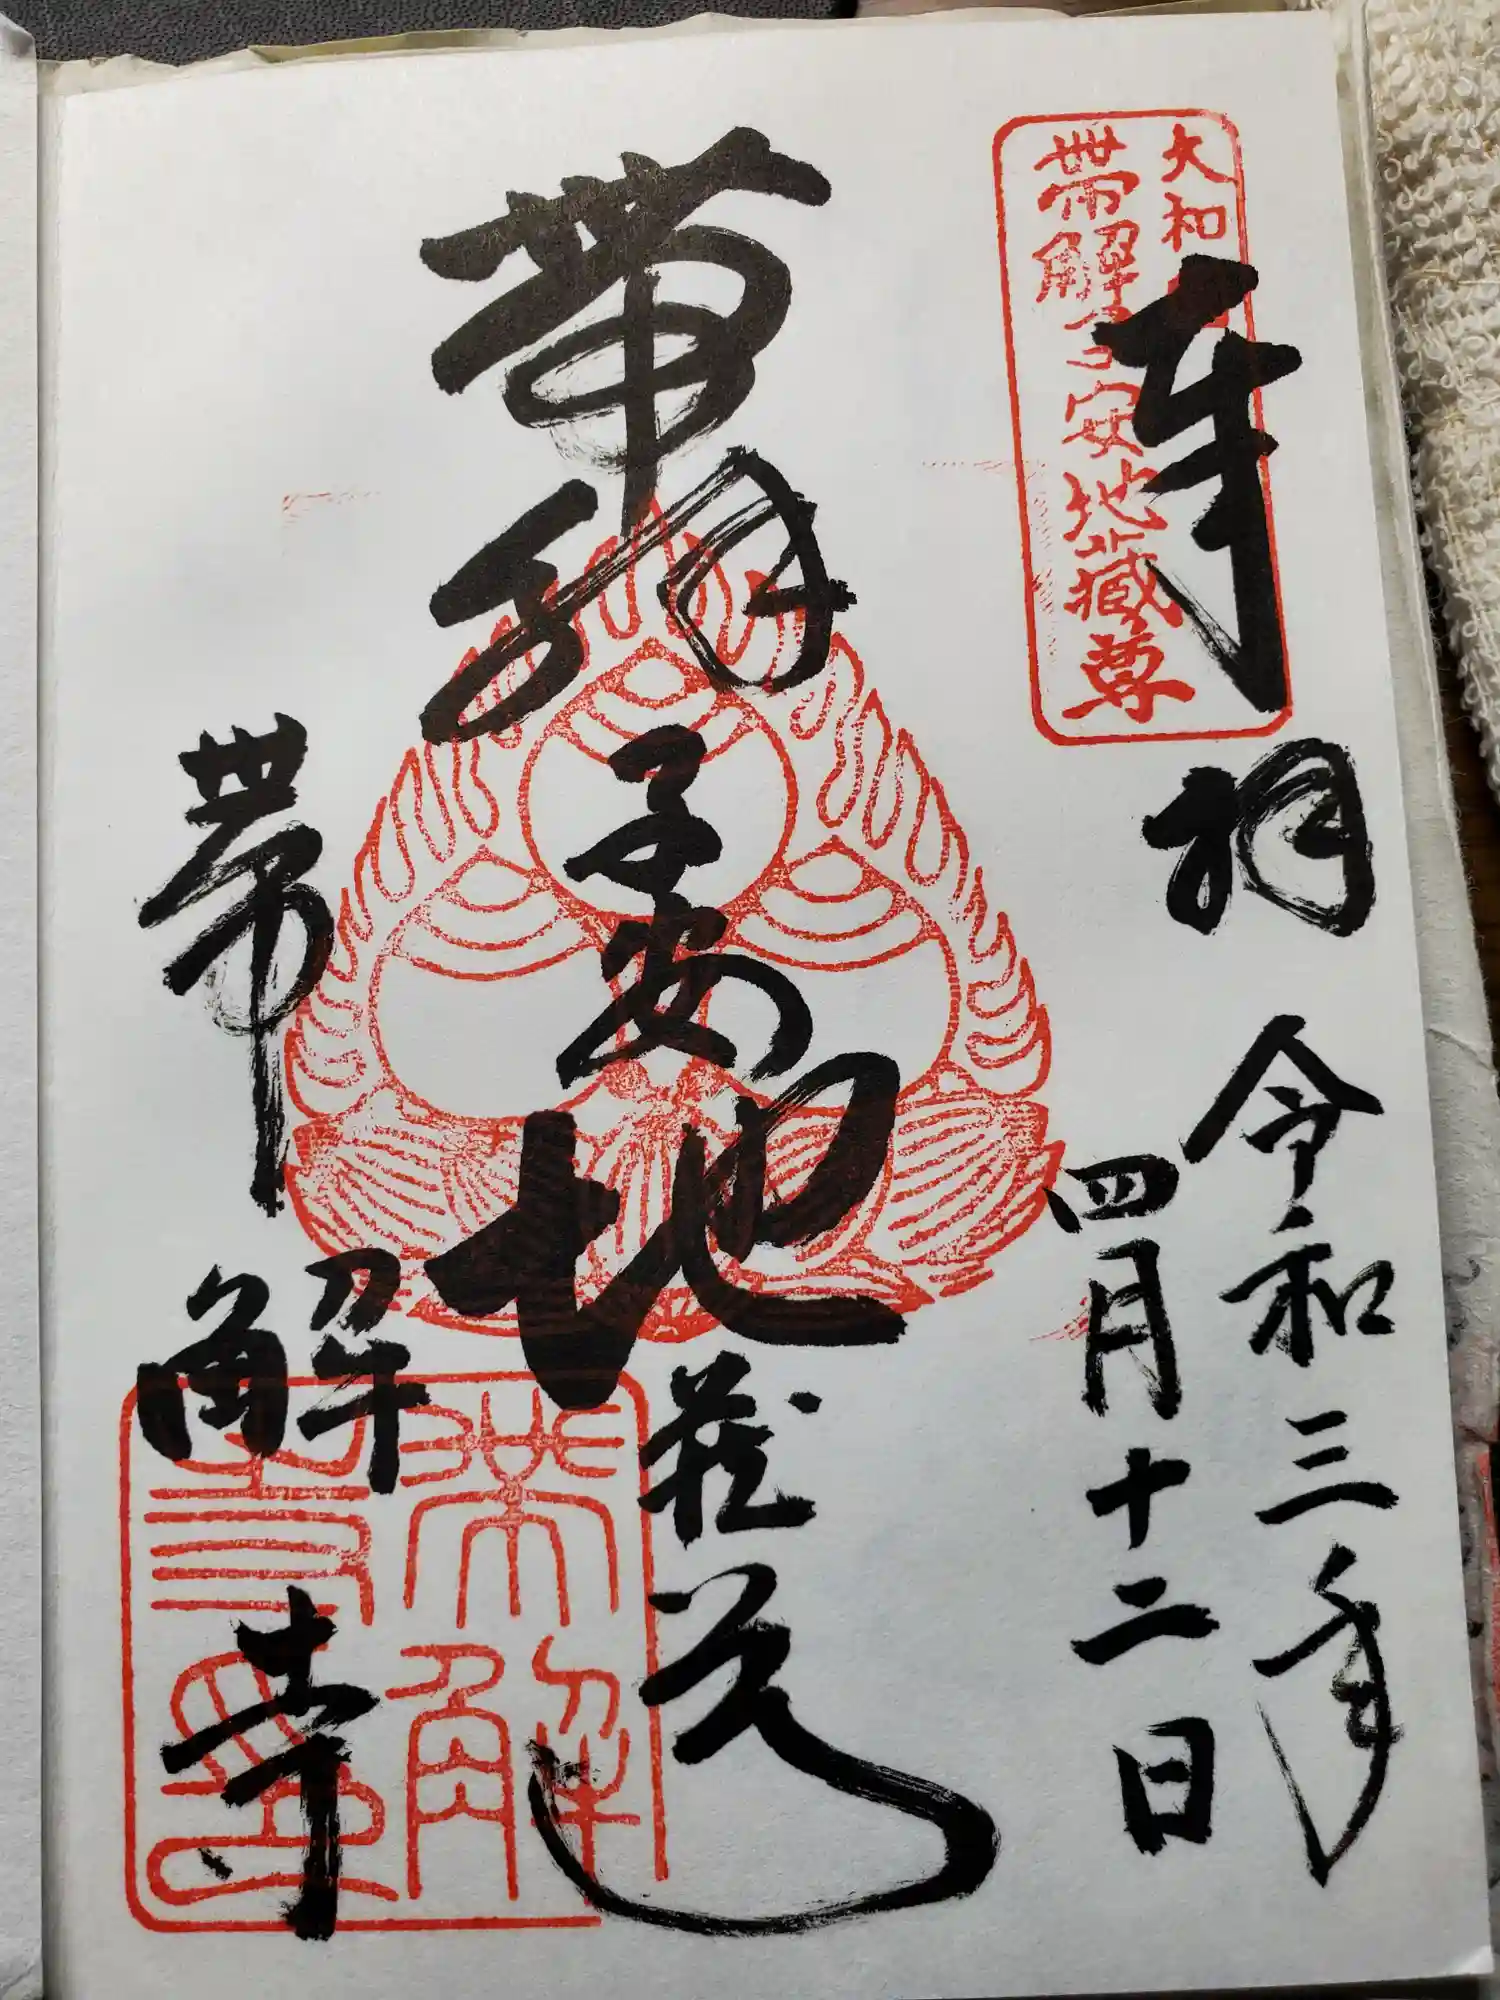 奉拝
令和三年
四月十二日
大和
帯解子安地蔵尊
帯解子安地蔵尊
帯解寺
帯解
寺印